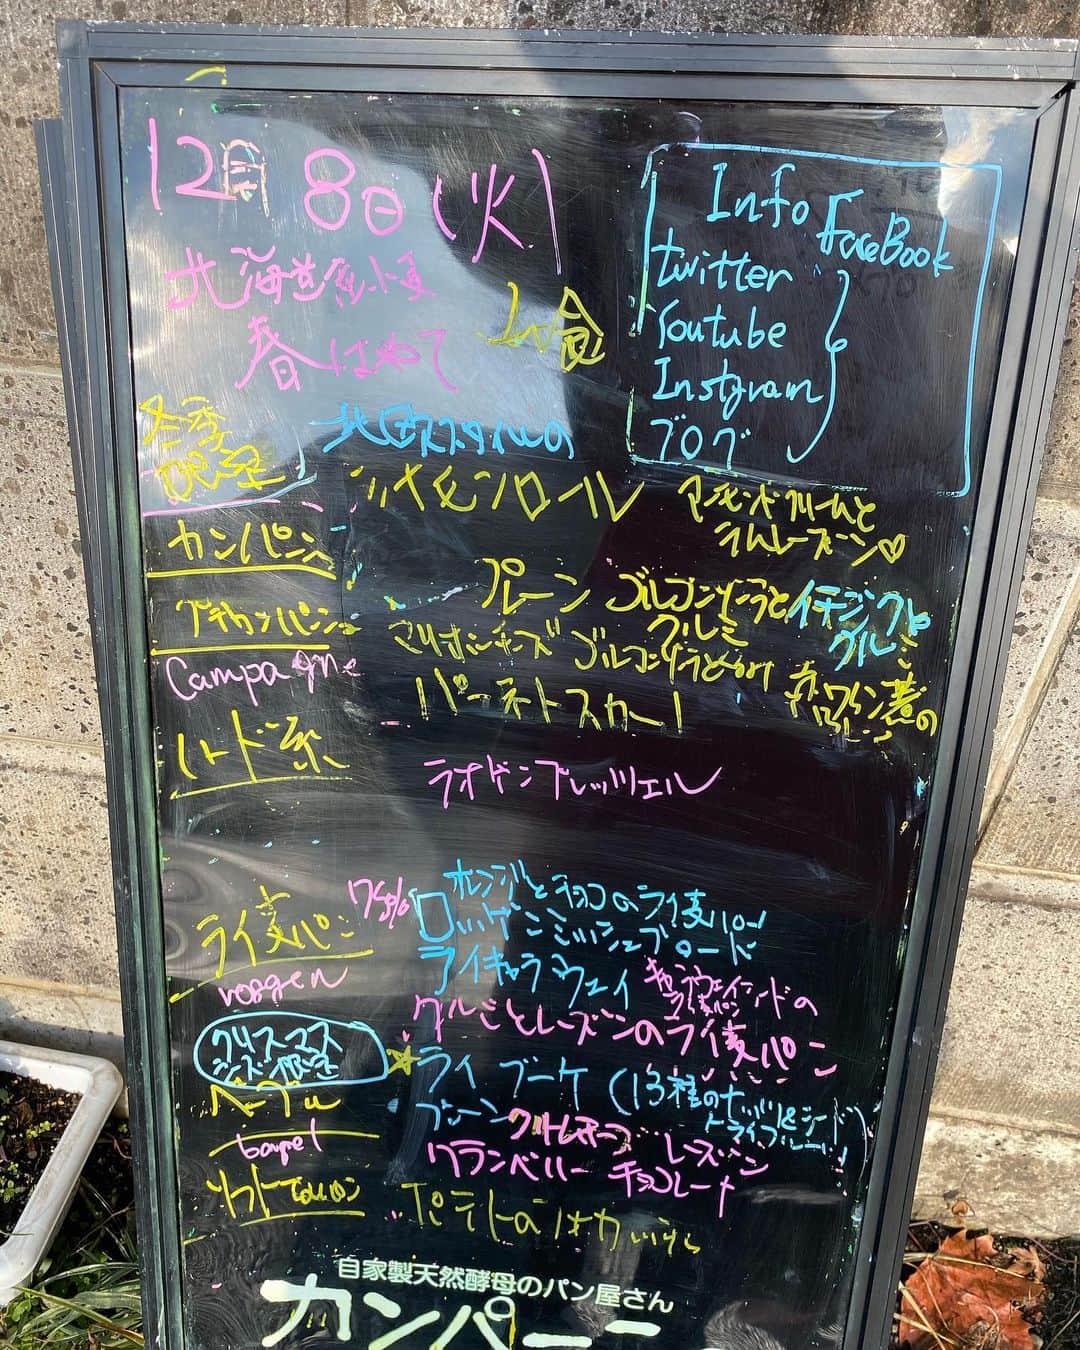 12月8日(火)
北海道産小麦
春はやて
山食
Info
FaceBook
twitter
Youtube
Instgram
ブログ
冬季
限定
北欧スタイルの
シナモンロール
アーモンドクリームと
ラムレーズン♡
カンパン
プチカンパン
Campagne
プレーン
ゴルゴンゾーラと
クルミ
イチジクと
クルミ
マリボーチーズ
ゴルゴンゾーラと
赤ワイン煮の
ハード系
ラオゲンブレッツェル
ライ麦パン
roggen
75%
オレンジとチョコのライ麦パン
ロッゲンミッシュブロード
ライキャラウェイ
クルミとレーズンのライ麦パン
クリスマス
シーズン限定
☆ライブーケ(13種のナッツ&シード
ドライフルーツ)
ベーグル
bagel
プレーン
レーズン
クランベリー
チョコレート
自家製天然酵母のパン屋さん
カンパーニ